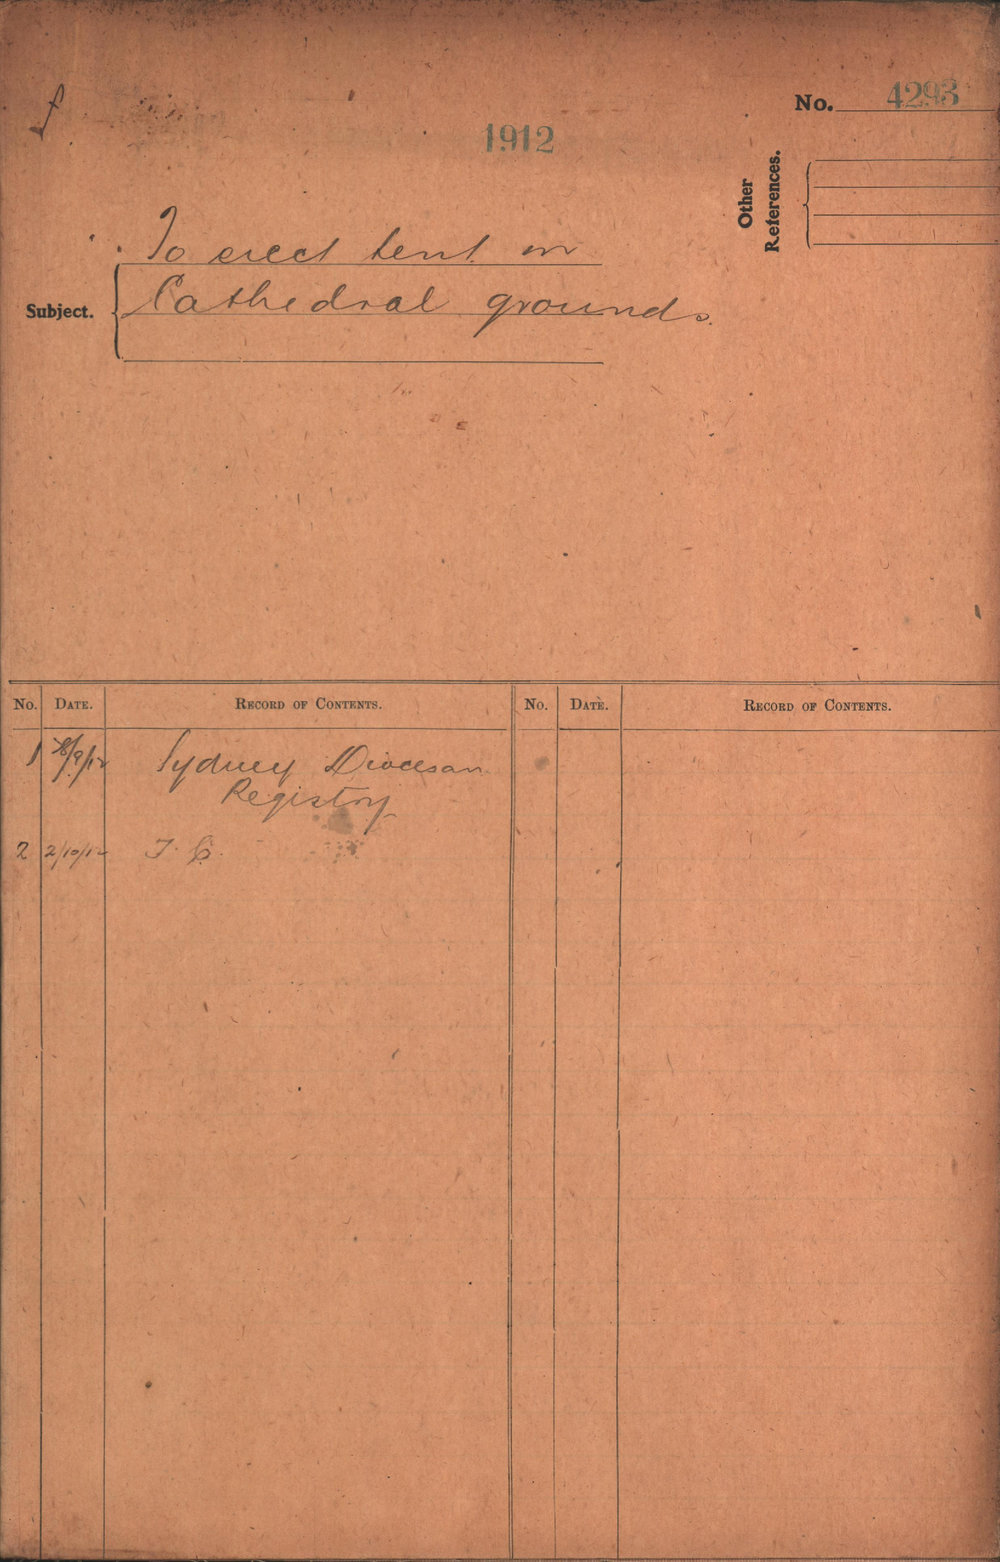 f
No. 4293
1912
Other
References.
To erect tent in
Subject. Cathedral grounds.
No. DATE. RECORD OF CONTENTS. No. DATE. RECORD OF CONTENTS.
1 28/9/12 Sydney Diocesan
Registry
2 2/10/12 T. C.